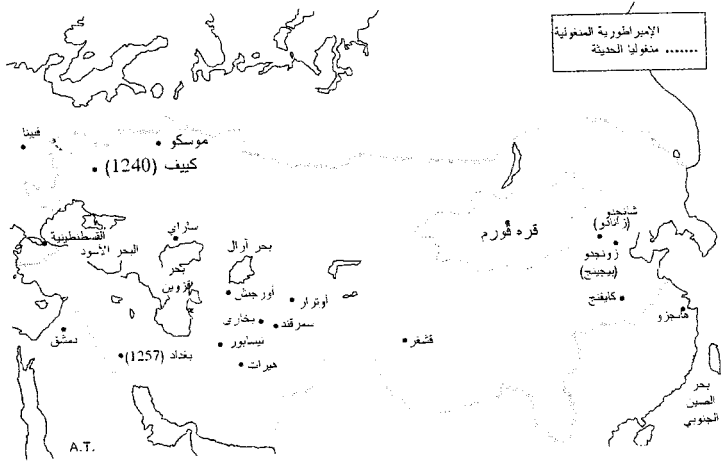 الإمبراطورية المنغولية
....... منغوليا الحديثة
فيينا
موسكو
كييف (1240)
القسطنطينية
البحر الأسود
ساراي
بحر
قزوين
بحر أرال
أورجنش
أوترار
بخارى
سمرقند
نيسابور
هيرات
دمشق
بغداد (1257)
قشغر
قره قورم
شانجدو
(زانادو)
زونجدو
(بيجينج)
كايفنج
هانجزو
بحر
الصين
الجنوبي
A.T.